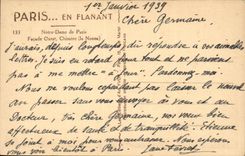 PARIS... EN FLANANT
133
Notre-Dame de Paris
Façade Ouest, Chimère (le Moine)
1er Janvier 1939
Chère Germaine.
J'aurais, depuis longtemps dû répondre à vos aimables
lettre. Je suis en retard pour tout et ne parviens
pas à me mettre "à jour". Pardonnez-moi.
Nous ne voulons cependant pas commencer le nouvel
an passer sans vous envoyer à vous et au
Docteur, très chère Germaine, nos vœux bien
affectueux de santé et de tranquillité. Etienne
se joint à moi pour vous embrasser. Nous espérons
vous voir bientôt à Paris.